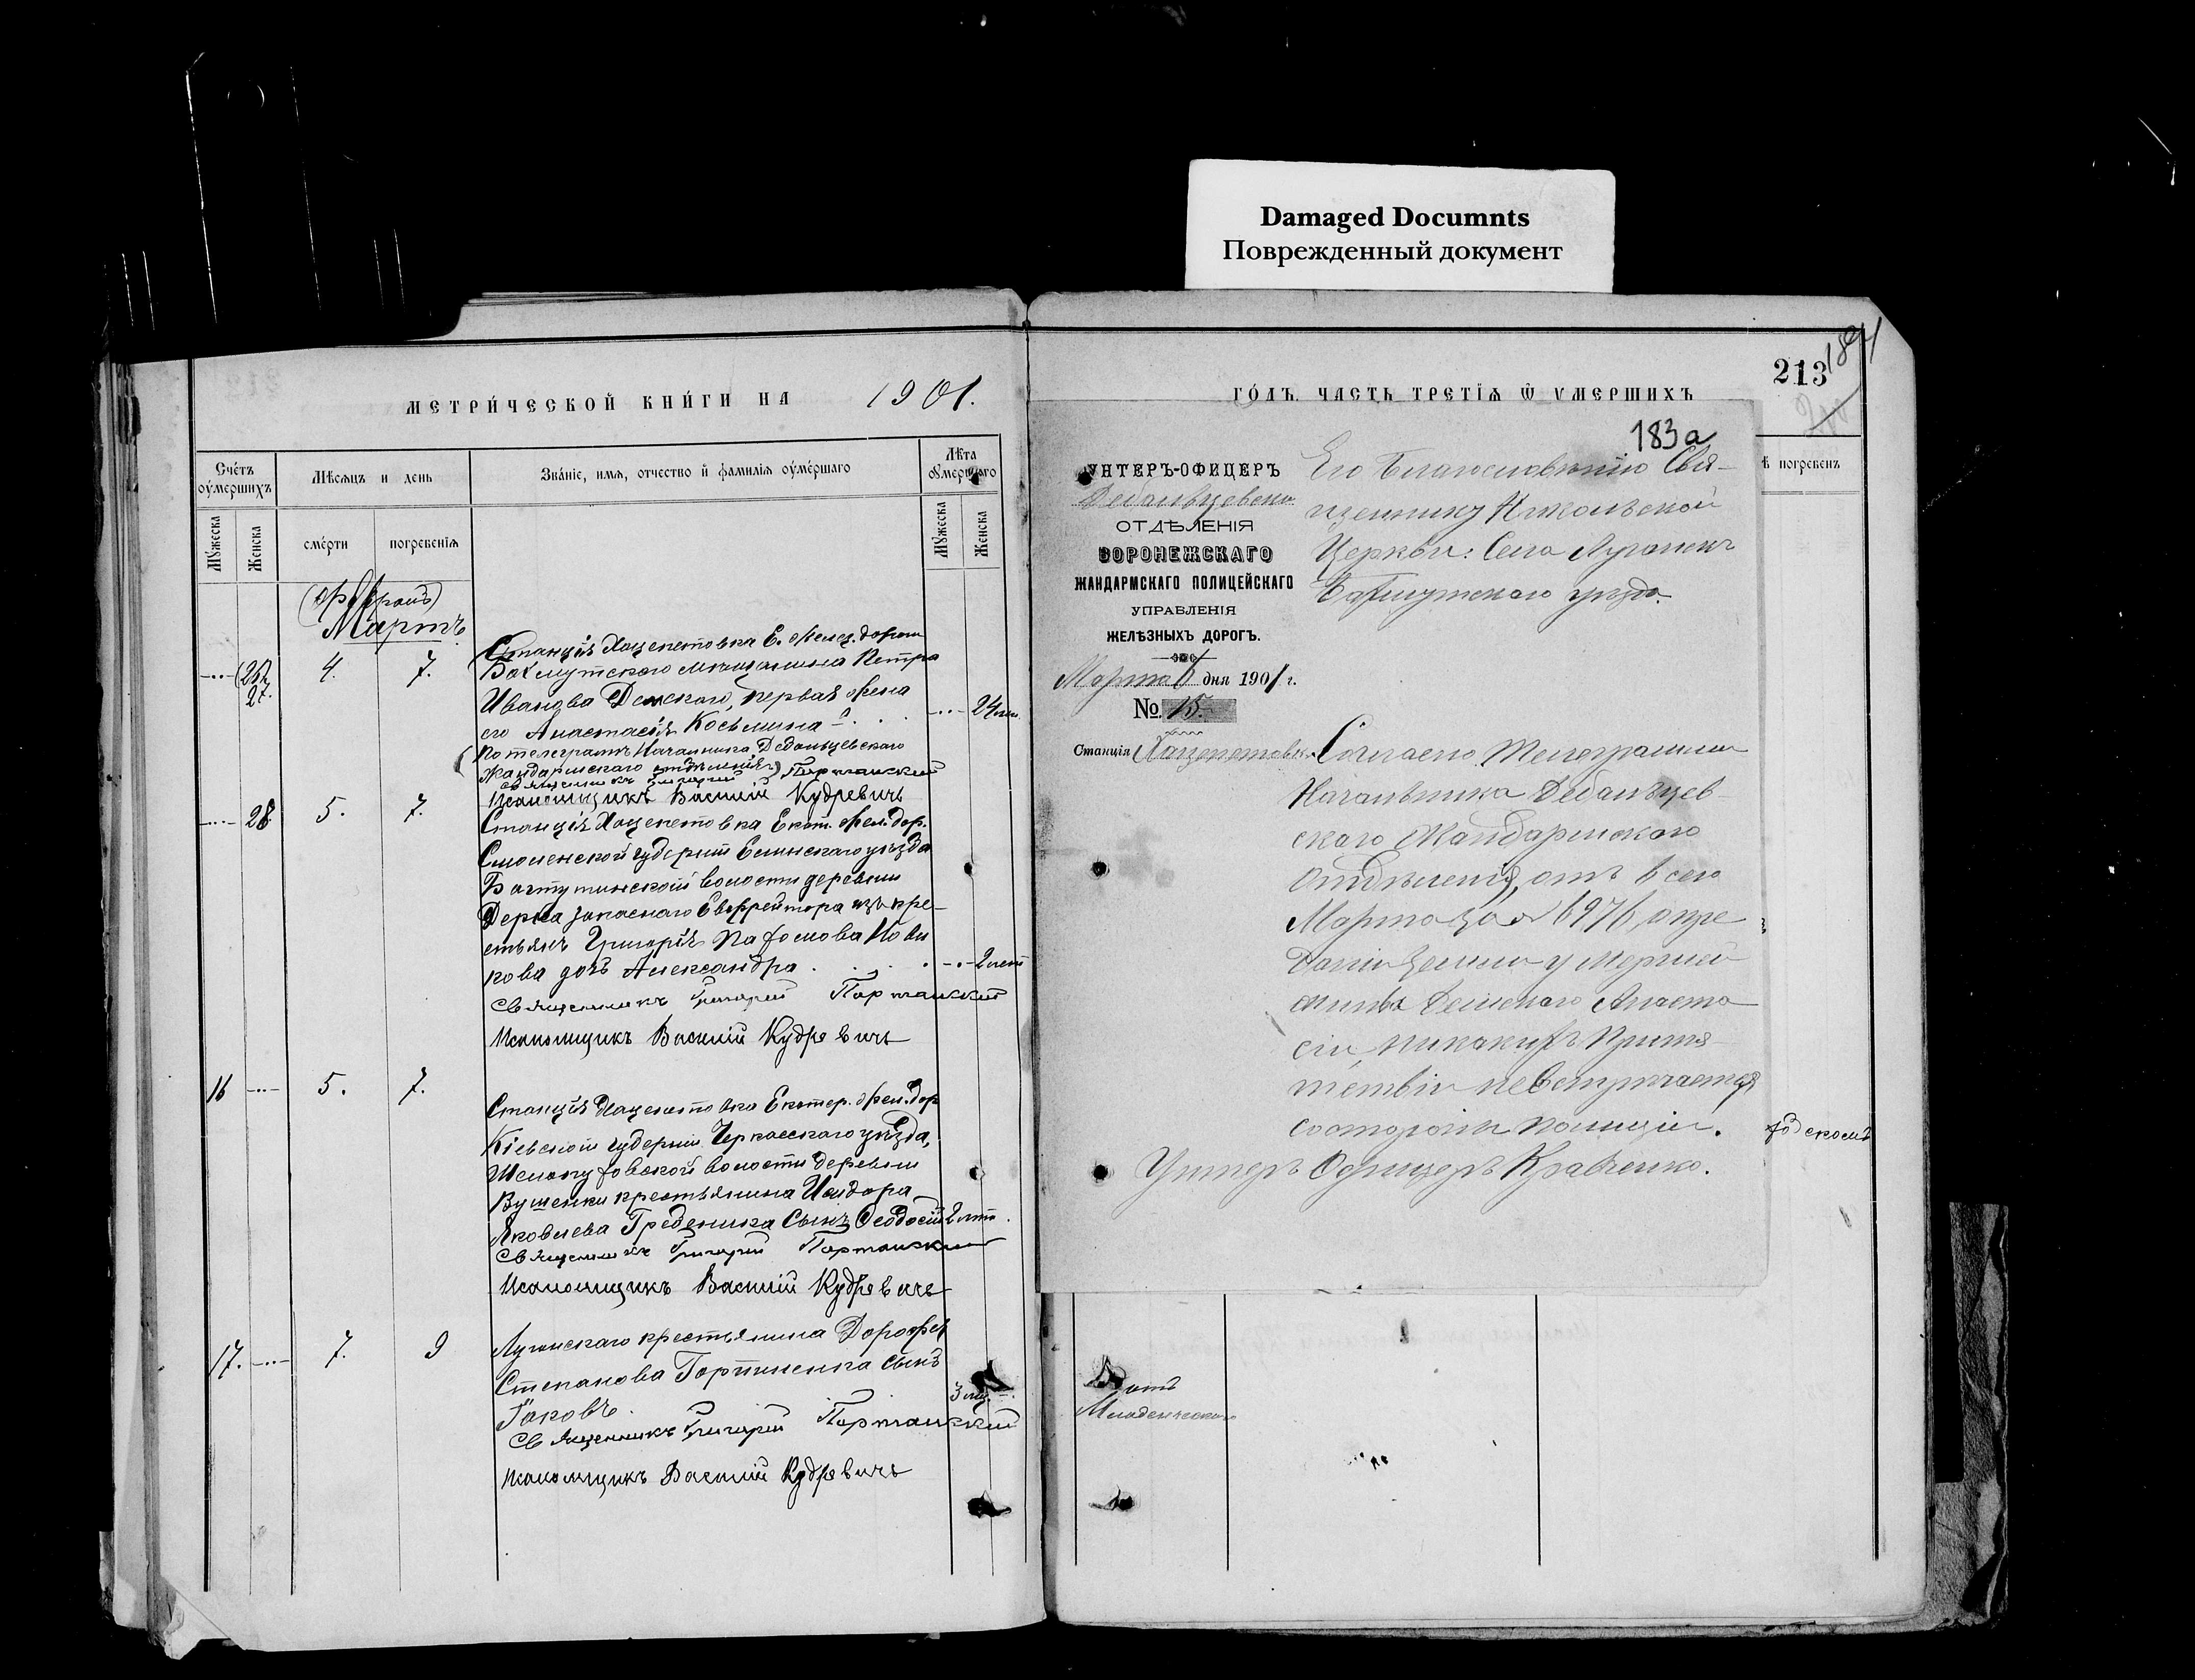 Damaged Documnts
Поврежденный документ
МЕТРИ́ЧЕСКОЙ КНИ́ГИ НА 1901.
Сче́тъ оу҆ме́ршихъ
Мѣсяцъ и день
Зва́нїе, имѧ, отчество и҆ фамилїѧ оу҆ме́ршаго
Лѣта оу҆ме́ршаго
Мꙋжеска
Женска
сме́рти
погребенїѧ
Мꙋжеска
Женска
Мартъ
27.
4.
7.
Станція Хацепетовка Е. желез. дороги
Бахмутскаго мѣщанина Петра
Иванова Демскаго, первая жена
его Анастасія Косьмина
24 лѣт
(По телеграммѣ Начальника Дебальцевскаго
Жандармскаго отдѣленія)
Священникъ Григорій Портанскій
Псаломщикъ Василій Кудревичъ
28
5.
7.
Станція Хацепетовка Екат. жел. дор.
Смоленской губерніи Ельнинскаго уѣзда
волости деревни
запаснаго Ефрейтора изъ кре-
стьянъ Григорія Пафомова Нови
кова дочь Александра
2 лѣт
Священникъ Григорій Портанскій
Псаломщикъ Василій Кудревичъ
16
5.
7.
Станція Хацепетовка Екатер. жел. дор
Кіевской губерніи Черкасскаго уѣзда,
волости деревни
крестьянина Исидора
Яковлева Гребеника Сынъ Ѳеодосій
2 лѣт
Священникъ Григорій Портанскій
Псаломщикъ Василій Кудревичъ
17.
7.
9
Луганскаго крестьянина Дорофея
Степанова Горпиненка сынъ
Іаковъ.
3 мѣс.
Священникъ Григорій Портанскій
Псаломщикъ Василій Кудревичъ
ГО́ДЪ, ЧАСТЬ ТРЕТЇѦ Ѿ УМЕРШИХЪ
213
184
ѣ погребенъ
183а
УНТЕРЪ-ОФИЦЕРЪ
Дебальцевск
ОТДѢЛЕНІЯ
ВОРОНЕЖСКАГО
ЖАНДАРМСКАГО ПОЛИЦЕЙСКАГО
УПРАВЛЕНІЯ
ЖЕЛѢЗНЫХЪ ДОРОГЪ.
Марта 6 дня 1901 г.
№ 15.
Станція Хацепетовка
Его Благословенію Свя-
щеннику Николаевской
Церкви: Села Луганскъ
Бахмутскаго уѣзда.
Согласно Телеграммы
Начальника Дебальцев-
скаго Жандармскаго
Отдѣленія, отъ 6 сего
Марта за № 6976, о пре
даніи Земли умершей
Демскаго Анаста
сіи, никакихъ Препя
тствіи невстрѣчается
состороны полиціи.
Унтеръ Офицеръ Кравченко.
отъ
Младенческаго